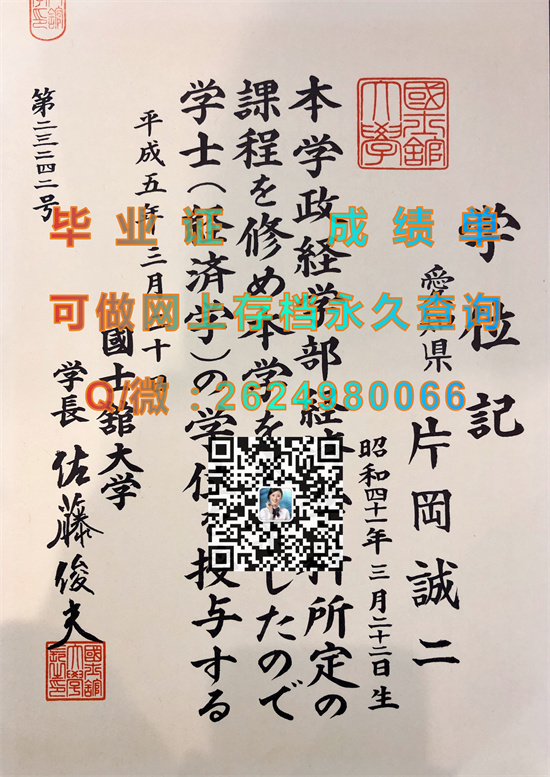 國士舘大学
学位記
愛県 片岡誠二
昭和四十一年三月二十二日生
本学政経学部経所定の
課程を修め本学をしたので
学士(経済学)の学位を授与する
平成五年三月十日
國士舘大学
学長 佐藤俊夫
第二三二四二号
毕业证 成绩单
可做网上存档永久查询
Q/微:2624980066